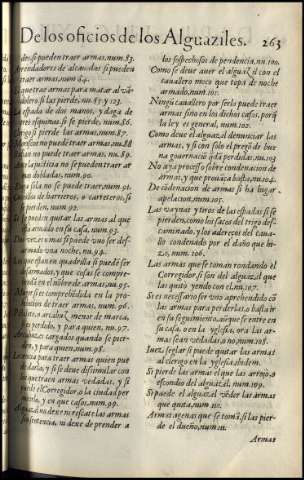 De los oficios de los Alguaziles. 263
dos, si pueden traer armas, num. 83.
Arrendadores de alcaualas si pueden
traer armas, num 84.
traer armas para matar al
si las pierde, nu. 85. y 123.
espada de dos manos, y daga de
si se pierde, num. 86.
si pierde las armas, num. 87.
no puede traer armas, nu. 88
no pueden traer armas, nu. 89.
no se pueden traer ar-
mas dobladas, num. 90.
sola si no se puede traer, num. 91.
de barreteros, o carreteros, si
se pierden, num. 92.
Si se pueden quitar las armas al que
noche, num. 93.
Dos vezes no se puede vno ser des-
armado vna noche, nu. 94.
en quadrilla si puede ser
desarmados, y que cosas se compre-
den en el nombre de armas, nu. 95.
si es comprehendida en la pro-
de traer armas, num. 96.
o arcabuz menor de marca,
es perdido, y para quien, nu. 97.
cargados quando se pier-
y para quien, num. 98.
para traer armas quien pue
darla, y si se dize dissimular con
que traen armas vedadas, y si
el Corregidor, o la ciudad per
y en que casos, num. 99.
Alguazil no deue ni rescate las armas
sin sentencia, ni dexe de prender a
los sospechosos de pendencia, nu. 100.
Como se deue auer el alguazil con el
cauallero moço que topa de noche
armado, num. 101.
Ningū cauallero por serlo puede traer
armas sino en los dichos casos, por q̄
la ley es general, num. 102.
Como deue el alguazil denunciar las
armas, y si con solo el pregō de bue
na gouernaciō q̄dā perdidas, nu. 103
No aya processo sobre condenacion de
armas, y que prouāça basta, nu. 104.
De cōdenacion de armas si ha lugar
apelacion, num. 105.
Las vaynas y tiros de las espadas si se
pierden, como los sacos del trigo des-
caminado, y los aderezos del caua-
llo condenado por el daño que hi-
zo, num. 106.
Las armas que se toman rondando el
Corregidor si son del alguazil que
las quito yendo con el, nu. 107.
Si es necessario ser vno aprehendido cō
las armas para perderlas, o basta ir
en su seguimiento, aunque se entre en
su casa, o en la yglesia, ora las ar-
mas sean vedadas, o no, num. 108.
Iuez seglar si puede quitar las armas
al clerigo en la yglesia, ibidem.
Si pierde las armas el que las arrojo, a
escondio del alguazil, num. 109.
Si puede el alguazil vēder las armas
que quita, num. 110.
Armas agenas que se tomā, si las pier-
de el dueño, num. 111.
Armas